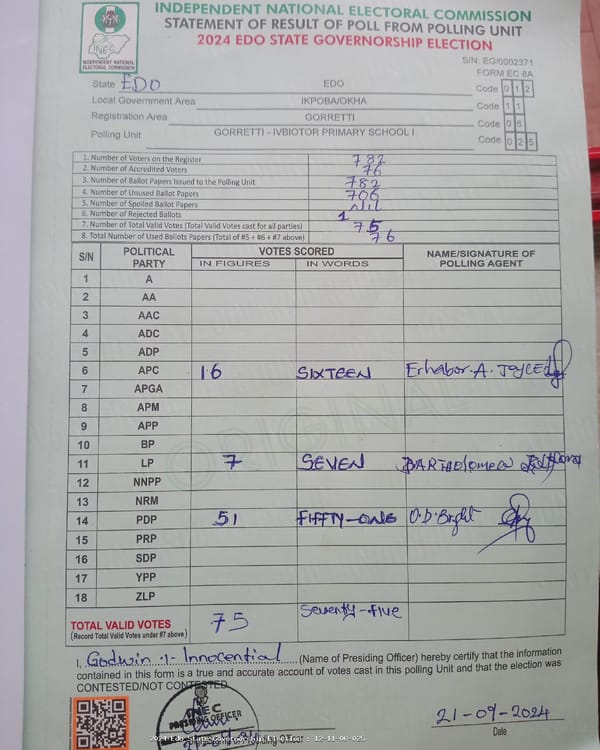 INDEPENDENT NATIONAL ELECTORAL COMMISSION
STATEMENT OF RESULT OF POLL FROM POLLING UNIT
2024 EDO STATE GOVERNORSHIP ELECTION
INEC
INDEPENDENT NATIONAL
ELECTORAL COMMISSION
S/N: EG/0002371
FORM EC 8A
State EDO EDO Code 0 1 2
Local Government Area IKPOBA/OKHA Code 1 1
Registration Area GORRETTI Code 0 6
Polling Unit GORRETTI - IVBIOTOR PRIMARY SCHOOL I Code 0 2 5
1. Number of Voters on the Register 782
2. Number of Accredited Voters 76
3. Number of Ballot Papers Issued to the Polling Unit 782
4. Number of Unused Ballot Papers 706
5. Number of Spoiled Ballot Papers Nil
6. Number of Rejected Ballots 1
7. Number of Total Valid Votes (Total Valid Votes cast for all parties) 75
8. Total Number of Used Ballots Papers (Total of #5 + #6 + #7 above) 76
S/N POLITICAL PARTY VOTES SCORED NAME/SIGNATURE OF POLLING AGENT
IN FIGURES IN WORDS
1 A
2 AA
3 AAC
4 ADC
5 ADP
6 APC 16 SIXTEEN Erhabor.A.Joyce
7 APGA
8 APM
9 APP
10 BP
11 LP 7 SEVEN BARTHOLOMEW
12 NNPP
13 NRM
14 PDP 51 FIFFTY-ONE O.D.Bright
15 PRP
16 SDP
17 YPP
18 ZLP
TOTAL VALID VOTES 75 Seventy-five
(Record Total Valid Votes under #7 above)
ORIGINAL
I, Godwin .I. Innocential (Name of Presiding Officer) hereby certify that the information
contained in this form is a true and accurate account of votes cast in this polling Unit and that the election was
CONTESTED/NOT CONTESTED
INEC
PRESIDING OFFICER
21-09-2024
Date
2024 Edo State Governorship Election : 12-11-06-025